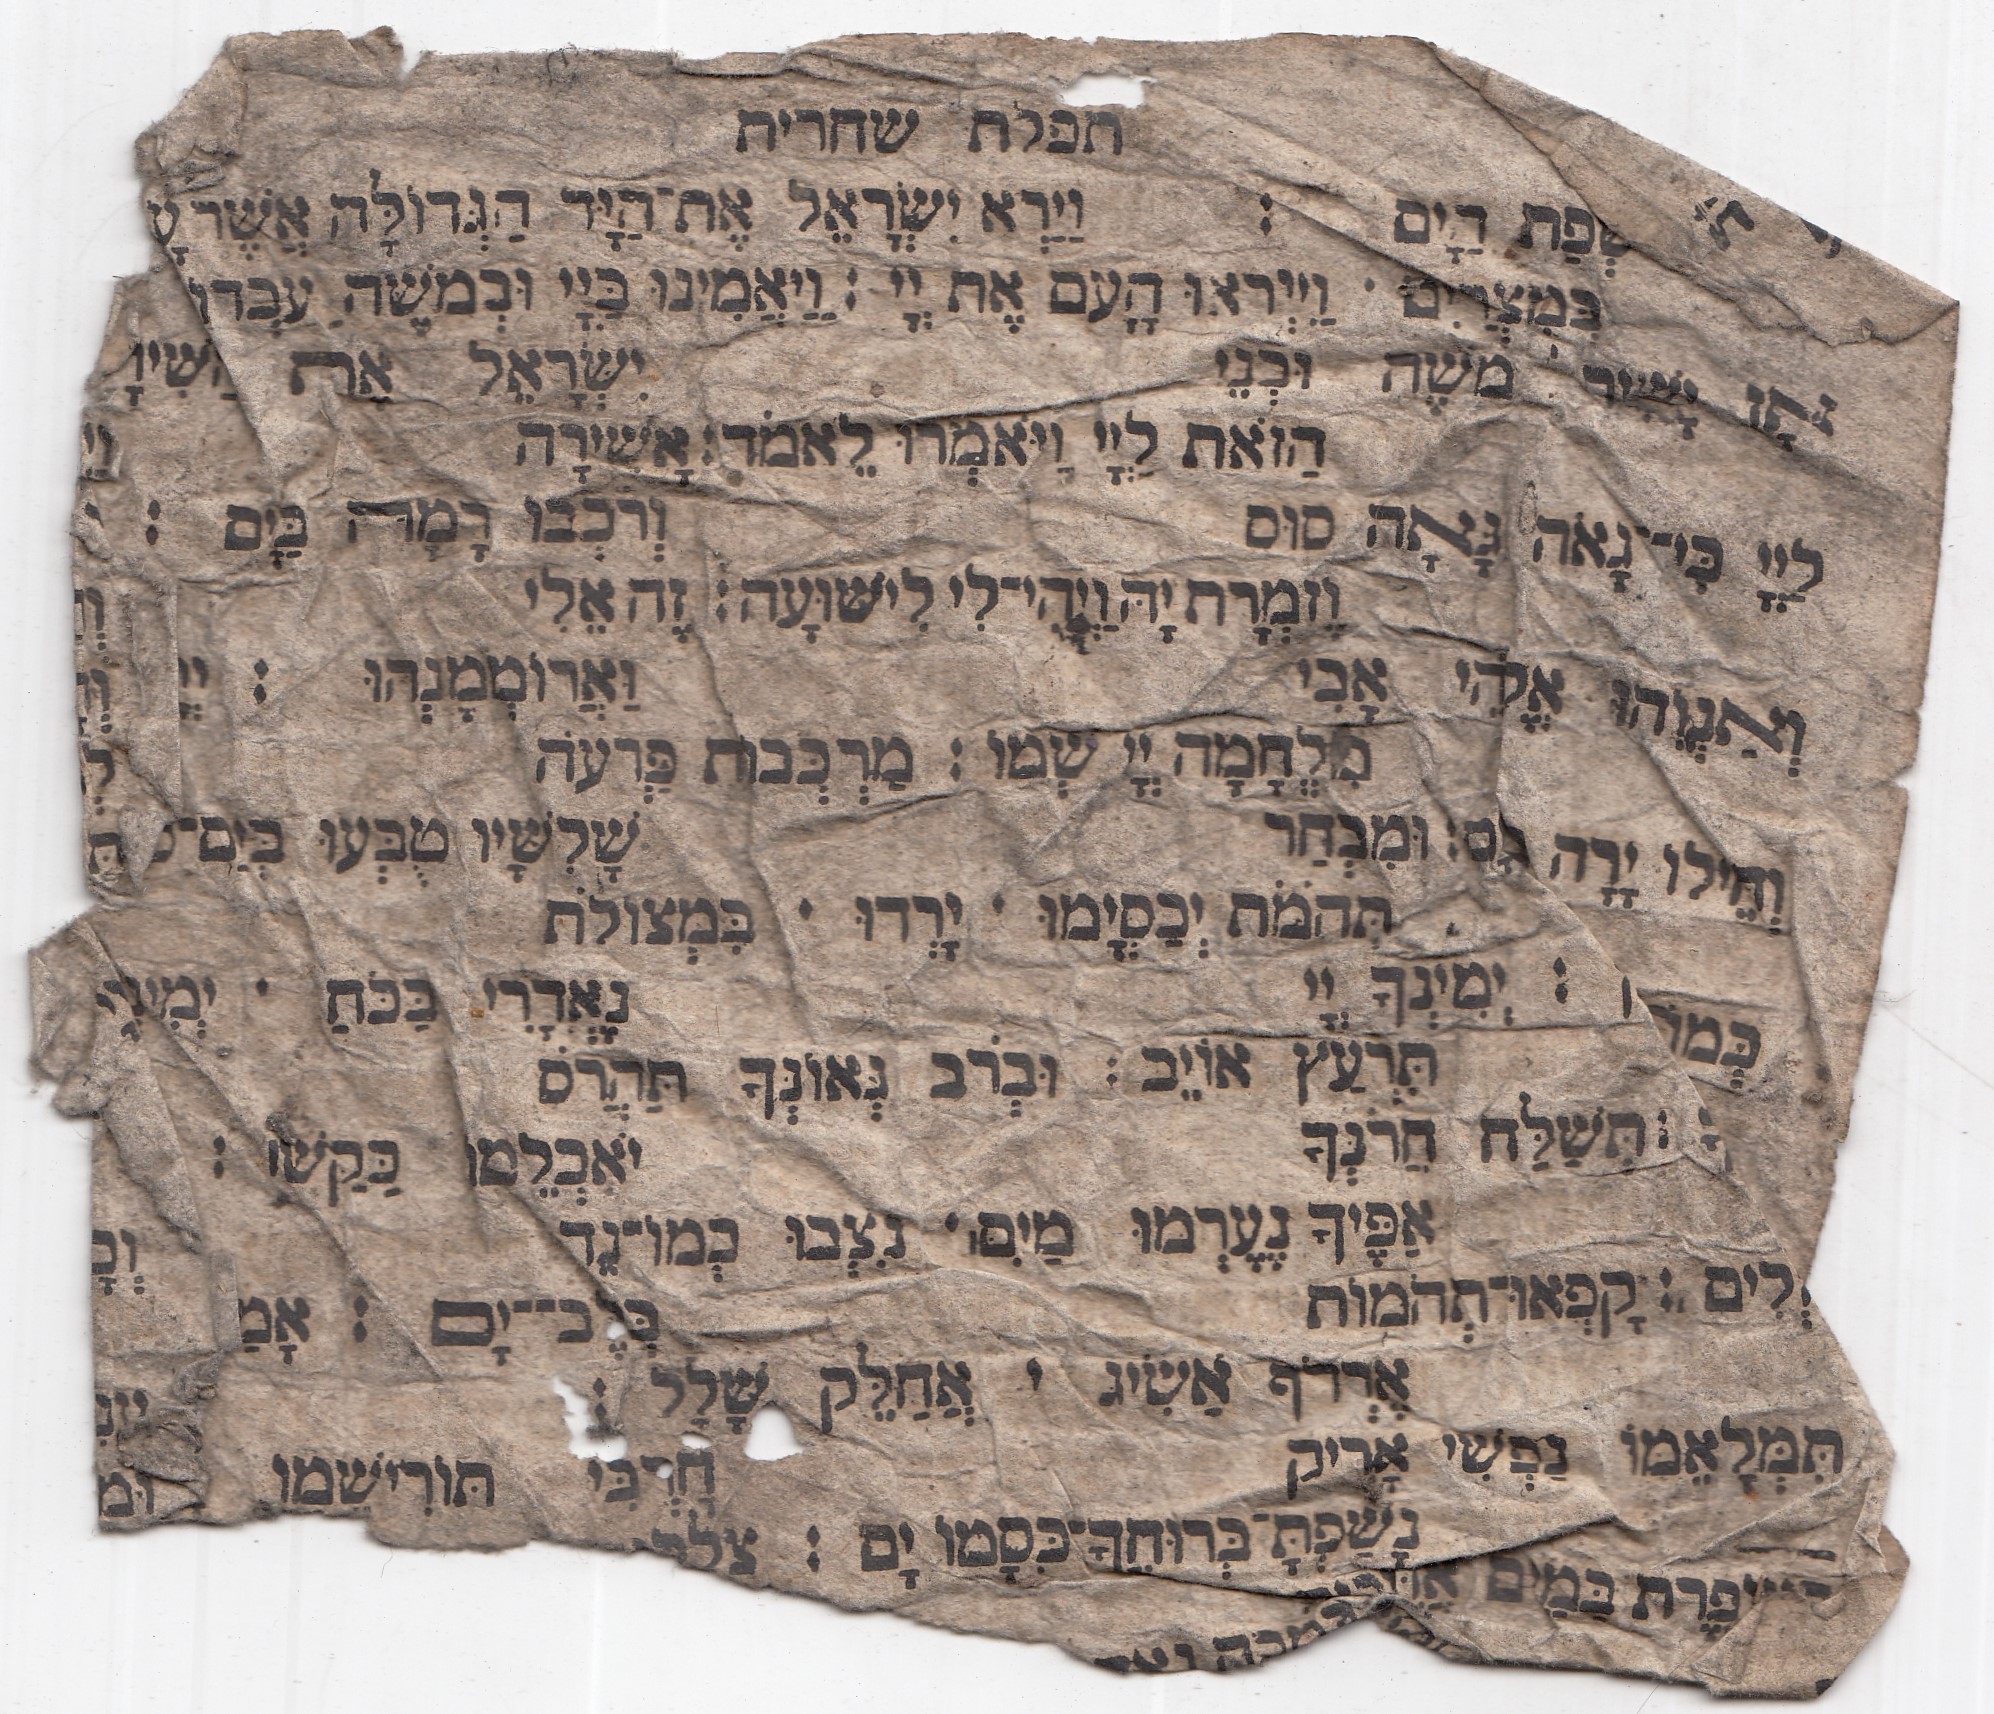 תפלת שחרית
שְׂפַת הַיָּם : וַיַּרְא יִשְׂרָאֵל אֶת־הַיָּד הַגְּדוֹלָה אֲשֶׁר
בְּמִצְרַיִם · וַיִּירְאוּ הָעָם אֶת יְיָ : וַיַּאֲמִינוּ בַּיְיָ וּבְמֹשֶׁה עַבְדּוֹ
יָשִׁיר מֹשֶׁה וּבְנֵי יִשְׂרָאֵל אֶת
הַזֹּאת לַיְיָ וַיֹּאמְרוּ לֵאמֹר : אָשִׁירָה
לַיְיָ כִּי־גָאֹה גָּאָה סוּס וְרֹכְבוֹ רָמָה בַיָּם :
וְזִמְרָת יָהּ וַיְהִי־לִי לִישׁוּעָה : זֶה אֵלִי
וְאַנְוֵהוּ אֱלֹהֵי אָבִי וַאֲרוֹמְמֶנְהוּ :
מִלְחָמָה יְיָ שְׁמוֹ : מַרְכְּבוֹת פַּרְעֹה
וְחֵילוֹ יָרָה בַיָּם : וּמִבְחַר שָׁלִשָׁיו טֻבְּעוּ בְיַם־
תְּהֹמֹת יְכַסְיֻמוּ · יָרְדוּ · בִמְצוֹלֹת
כְּמוֹ : יְמִינְךָ יְיָ נֶאְדָּרִי בַּכֹּחַ · יְמִינְךָ
תִּרְעַץ אוֹיֵב : וּבְרֹב גְּאוֹנְךָ תַּהֲרֹס
: תְּשַׁלַּח חֲרֹנְךָ יֹאכְלֵמוֹ כַּקַּשׁ :
אַפֶּיךָ נֶעֶרְמוּ מַיִם · נִצְּבוּ כְמוֹ־נֵד
: קָפְאוּ־תְהֹמוֹת בְּלֶב־יָם :
אֶרְדֹּף אַשִּׂיג · אֲחַלֵּק שָׁלָל :
תִּמְלָאֵמוֹ נַפְשִׁי אָרִיק חַרְבִּי תּוֹרִישֵׁמוֹ
נָשַׁפְתָּ־בְרוּחֲךָ־כִּסָּמוֹ יָם :
בְּמַיִם